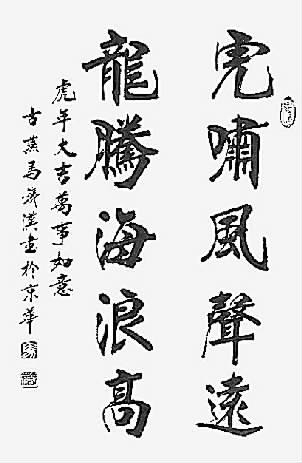 虎嘯風聲遠
龍騰海浪高
虎年大吉萬事如意
古燕馬
書於京華